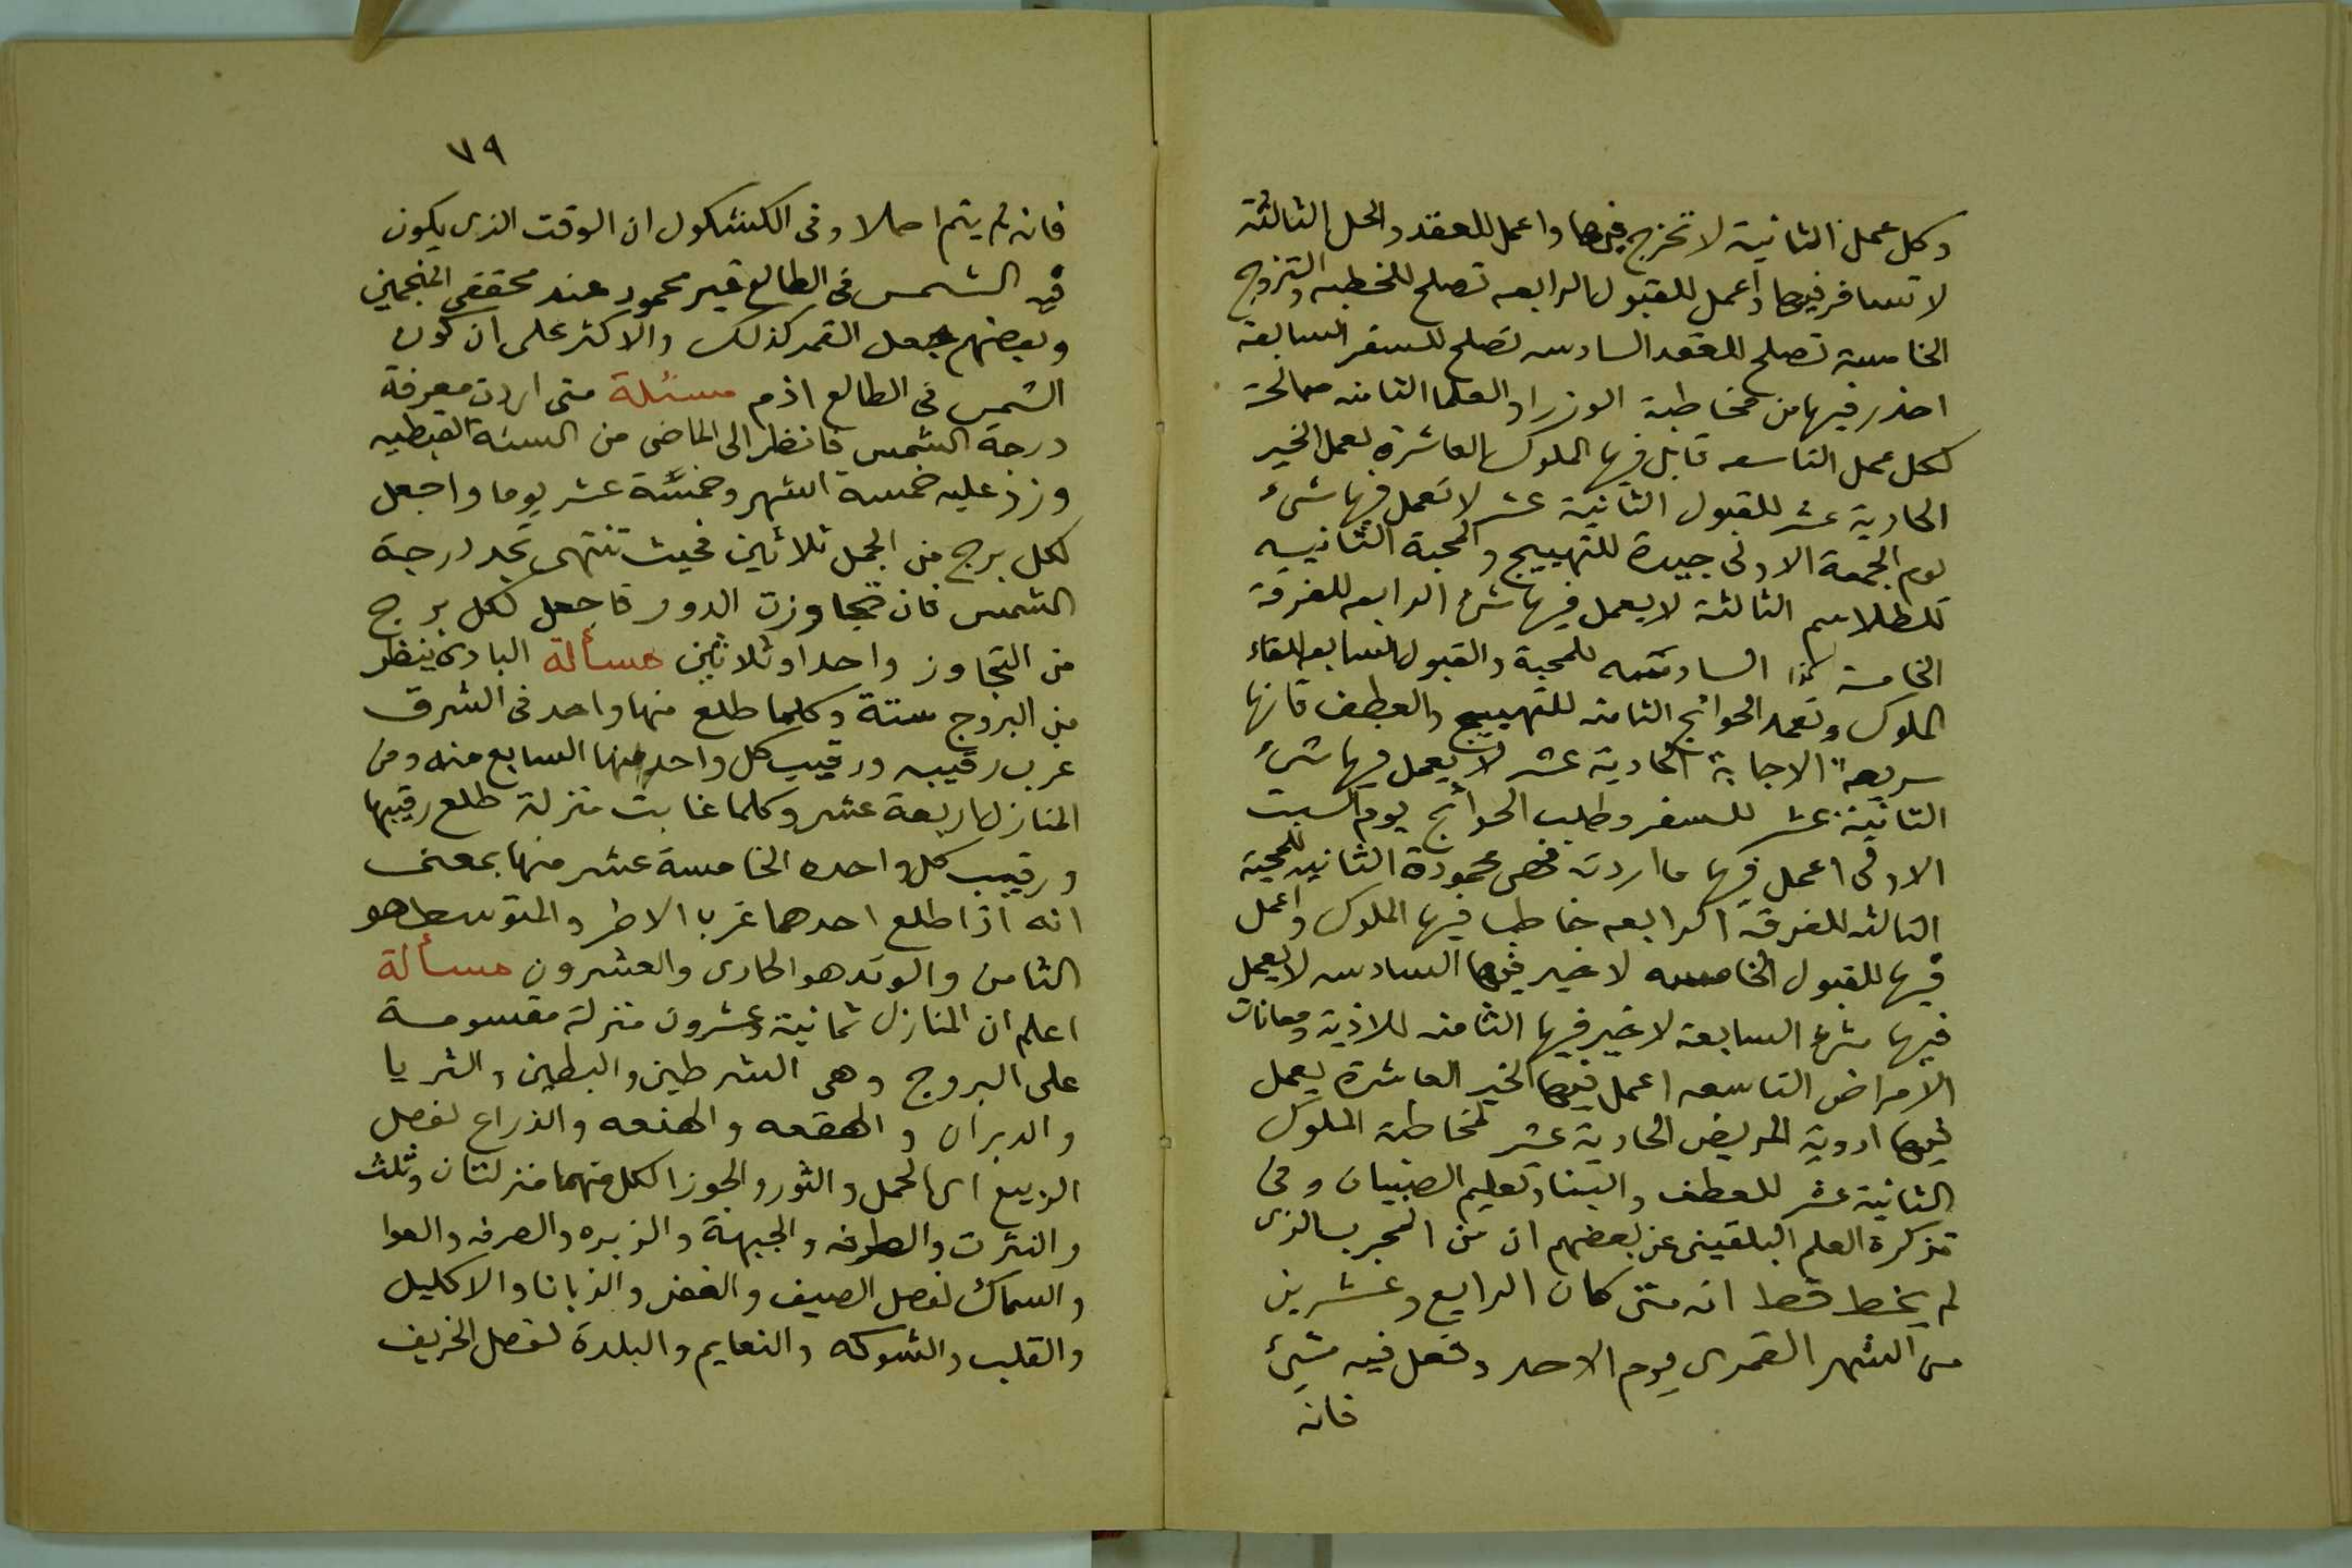 وكل عمل الثانية لا تخرج فيها واعمل للعقد والحل الثالثة
لا تسافر فيها واعمل للقبول الرابعه تصلح للخطبه والتزوج
الخامسة تصلح للعقد السادسه تصلح للسفر السابعة
احذر فيها من مخاطبة الوزرا والعلما الثامنه صالحة
لكل عمل التاسعه قابل فيها الملوك العاشرة لعمل الخير
الحادية عشر للقبول الثانية عشر لا تعمل فيها شئ
يوم الجمعة الاولى جيدة للتهييج والمحبة الثانييه
للطلاسم الثالثة لا يعمل فيها شئ الرابعه للفرقة
الخامسة كذا السادسه للمحبة والقبول السابعه للقاء
الملوك وتعمد الحوائج الثامنه للتهييج والعطف فانها
سريعة الاجابة الحادية عشر لا يعمل فيها شئ
الثانية عشر للسفر وطلب الحوائج يوم السبت
الاولى اعمل فيها ما اردت فهى محمودة الثانيه للمحبة
الثالثه للفرقة الرابعه خاطب فيها الملوك واعمل
فيها للقبول الخامسه لا خير فيها السادسه لا يعمل
فيها شئ السابعة لا خير فيها الثامنه للاذية ومعانات
الامراض التاسعه اعمل فيها الخير العاشرة يعمل
فيها ادوية المريض الحادية عشر لمخاطبة الملوك
الثانية عشر للعطف والبنا وتعليم الصبيان وفى
تذكرة العلم البلقينى عن بعضهم ان من المجرب الذى
لم يخط قط انه متى كان الرابع وعشرين
من الشهر القمرى يوم الاحد وفعل فيه شئ
فانه
٧٩
فانه لم يتم اصلا وفى الكشكول ان الوقت الذى يكون
فيه الشمس فى الطالع غير محمود عند محققى المنجمين
وبعضهم جعل القمر كذلك والاكثر على ان كون
الشمس فى الطالع اذم مسئلة متى اردت معرفة
درجة الشمس فانظر الى الماضى من السنة القبطيه
وزد عليه خمسة اشهر وخمسة عشر يوما واجعل
لكل برج من الحمل ثلاثين فحيث تنتهى تجد درجة
الشمس فان تجاوزت الدور فاجعل لكل برج
من التجاوز واحدا وثلاثين مسألة البادى ينظر
من البروج ستة وكلما طلع منها واحد فى الشرق
غرب رقيبه ورقيب كل واحد منها السابع منه ومن
المنازل اربعة عشر وكلما غابت منزلة طلع رقيبها
ورقيب كل واحده الخامسة عشر منها بمعنى
انه اذا طلع احدهما غرب الاخر والمتوسط هو
الثامن والوتد هو الحادى والعشرون مسألة
اعلم ان المنازل ثمانية وعشرون منزلة مقسومة
على البروج وهى الشرطين والبطين والثريا
والدبران والهقعه والهنعه والذراع لفصل
الربيع اى الحمل والثور والجوزا لكل منهما منزلتان وثلث
والنثرت والطرفه والجبهة والزبره والصرفه والعوا
والسماك لفصل الصيف والغفر والزبانا والاكليل
والقلب والشوكه والنعايم والبلدة لفصل الخريف